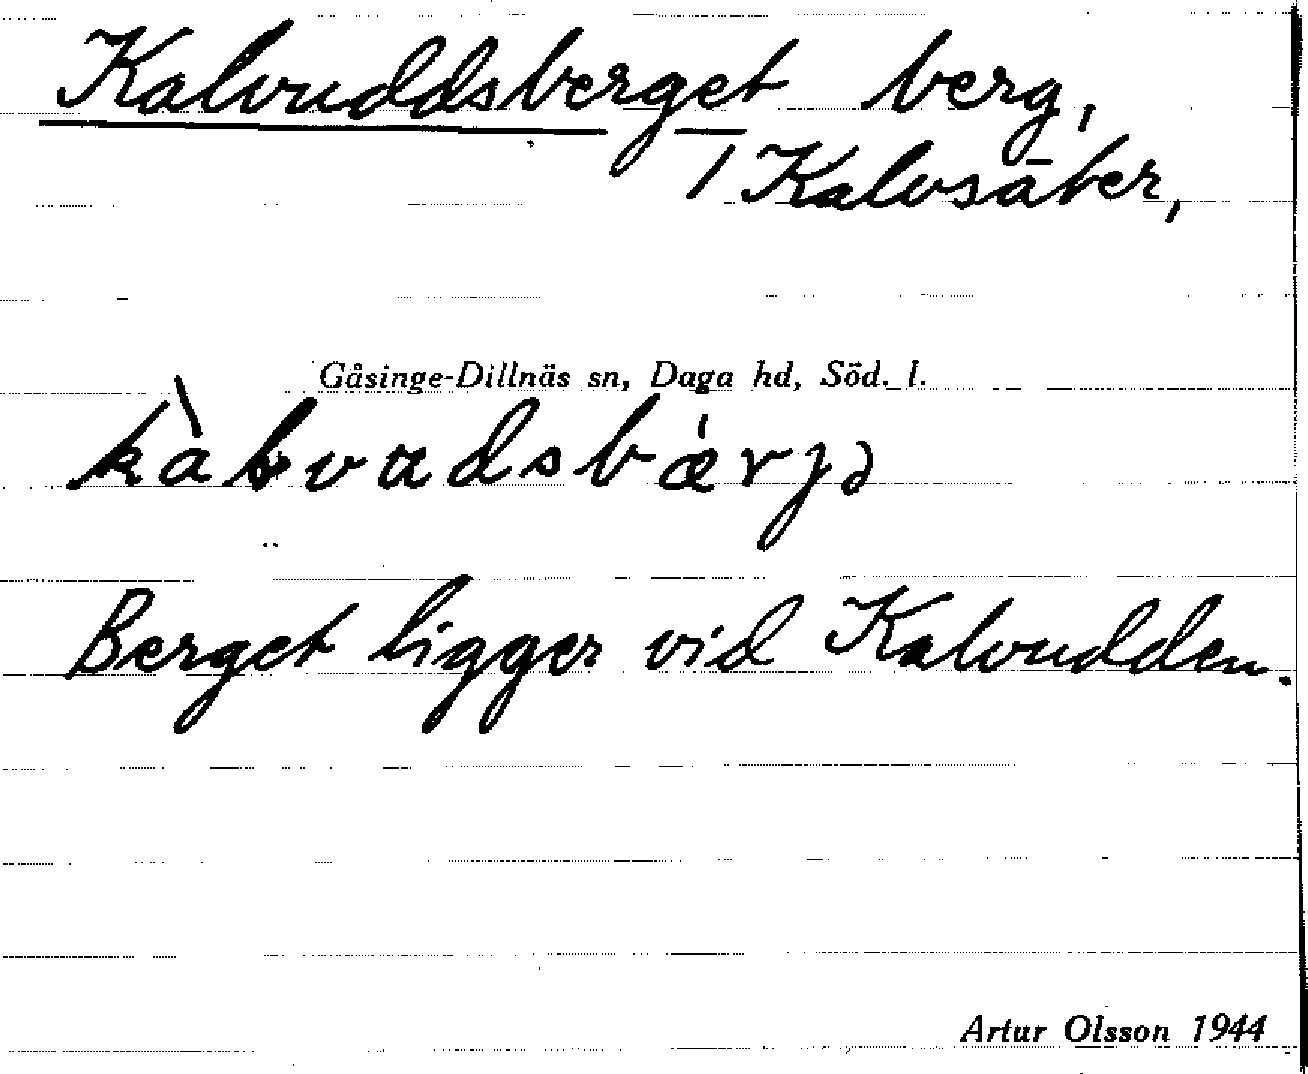 Kalvuddsberget berg,
/ Kalvsäter,
Gåsinge-Dillnäs sn, Daga hd, Söd. l.
Berget ligger vid Kalvudden.
Artur Olsson 1944